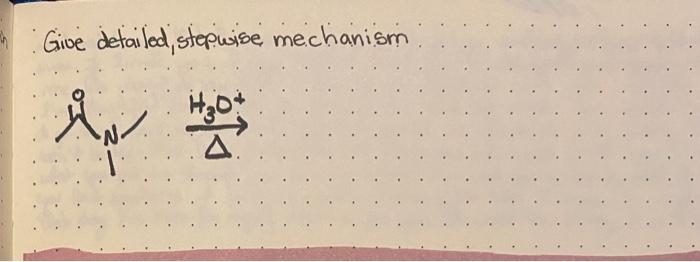 Give detailed, stepwise mechanism
O
H₃O⁺
N
Δ